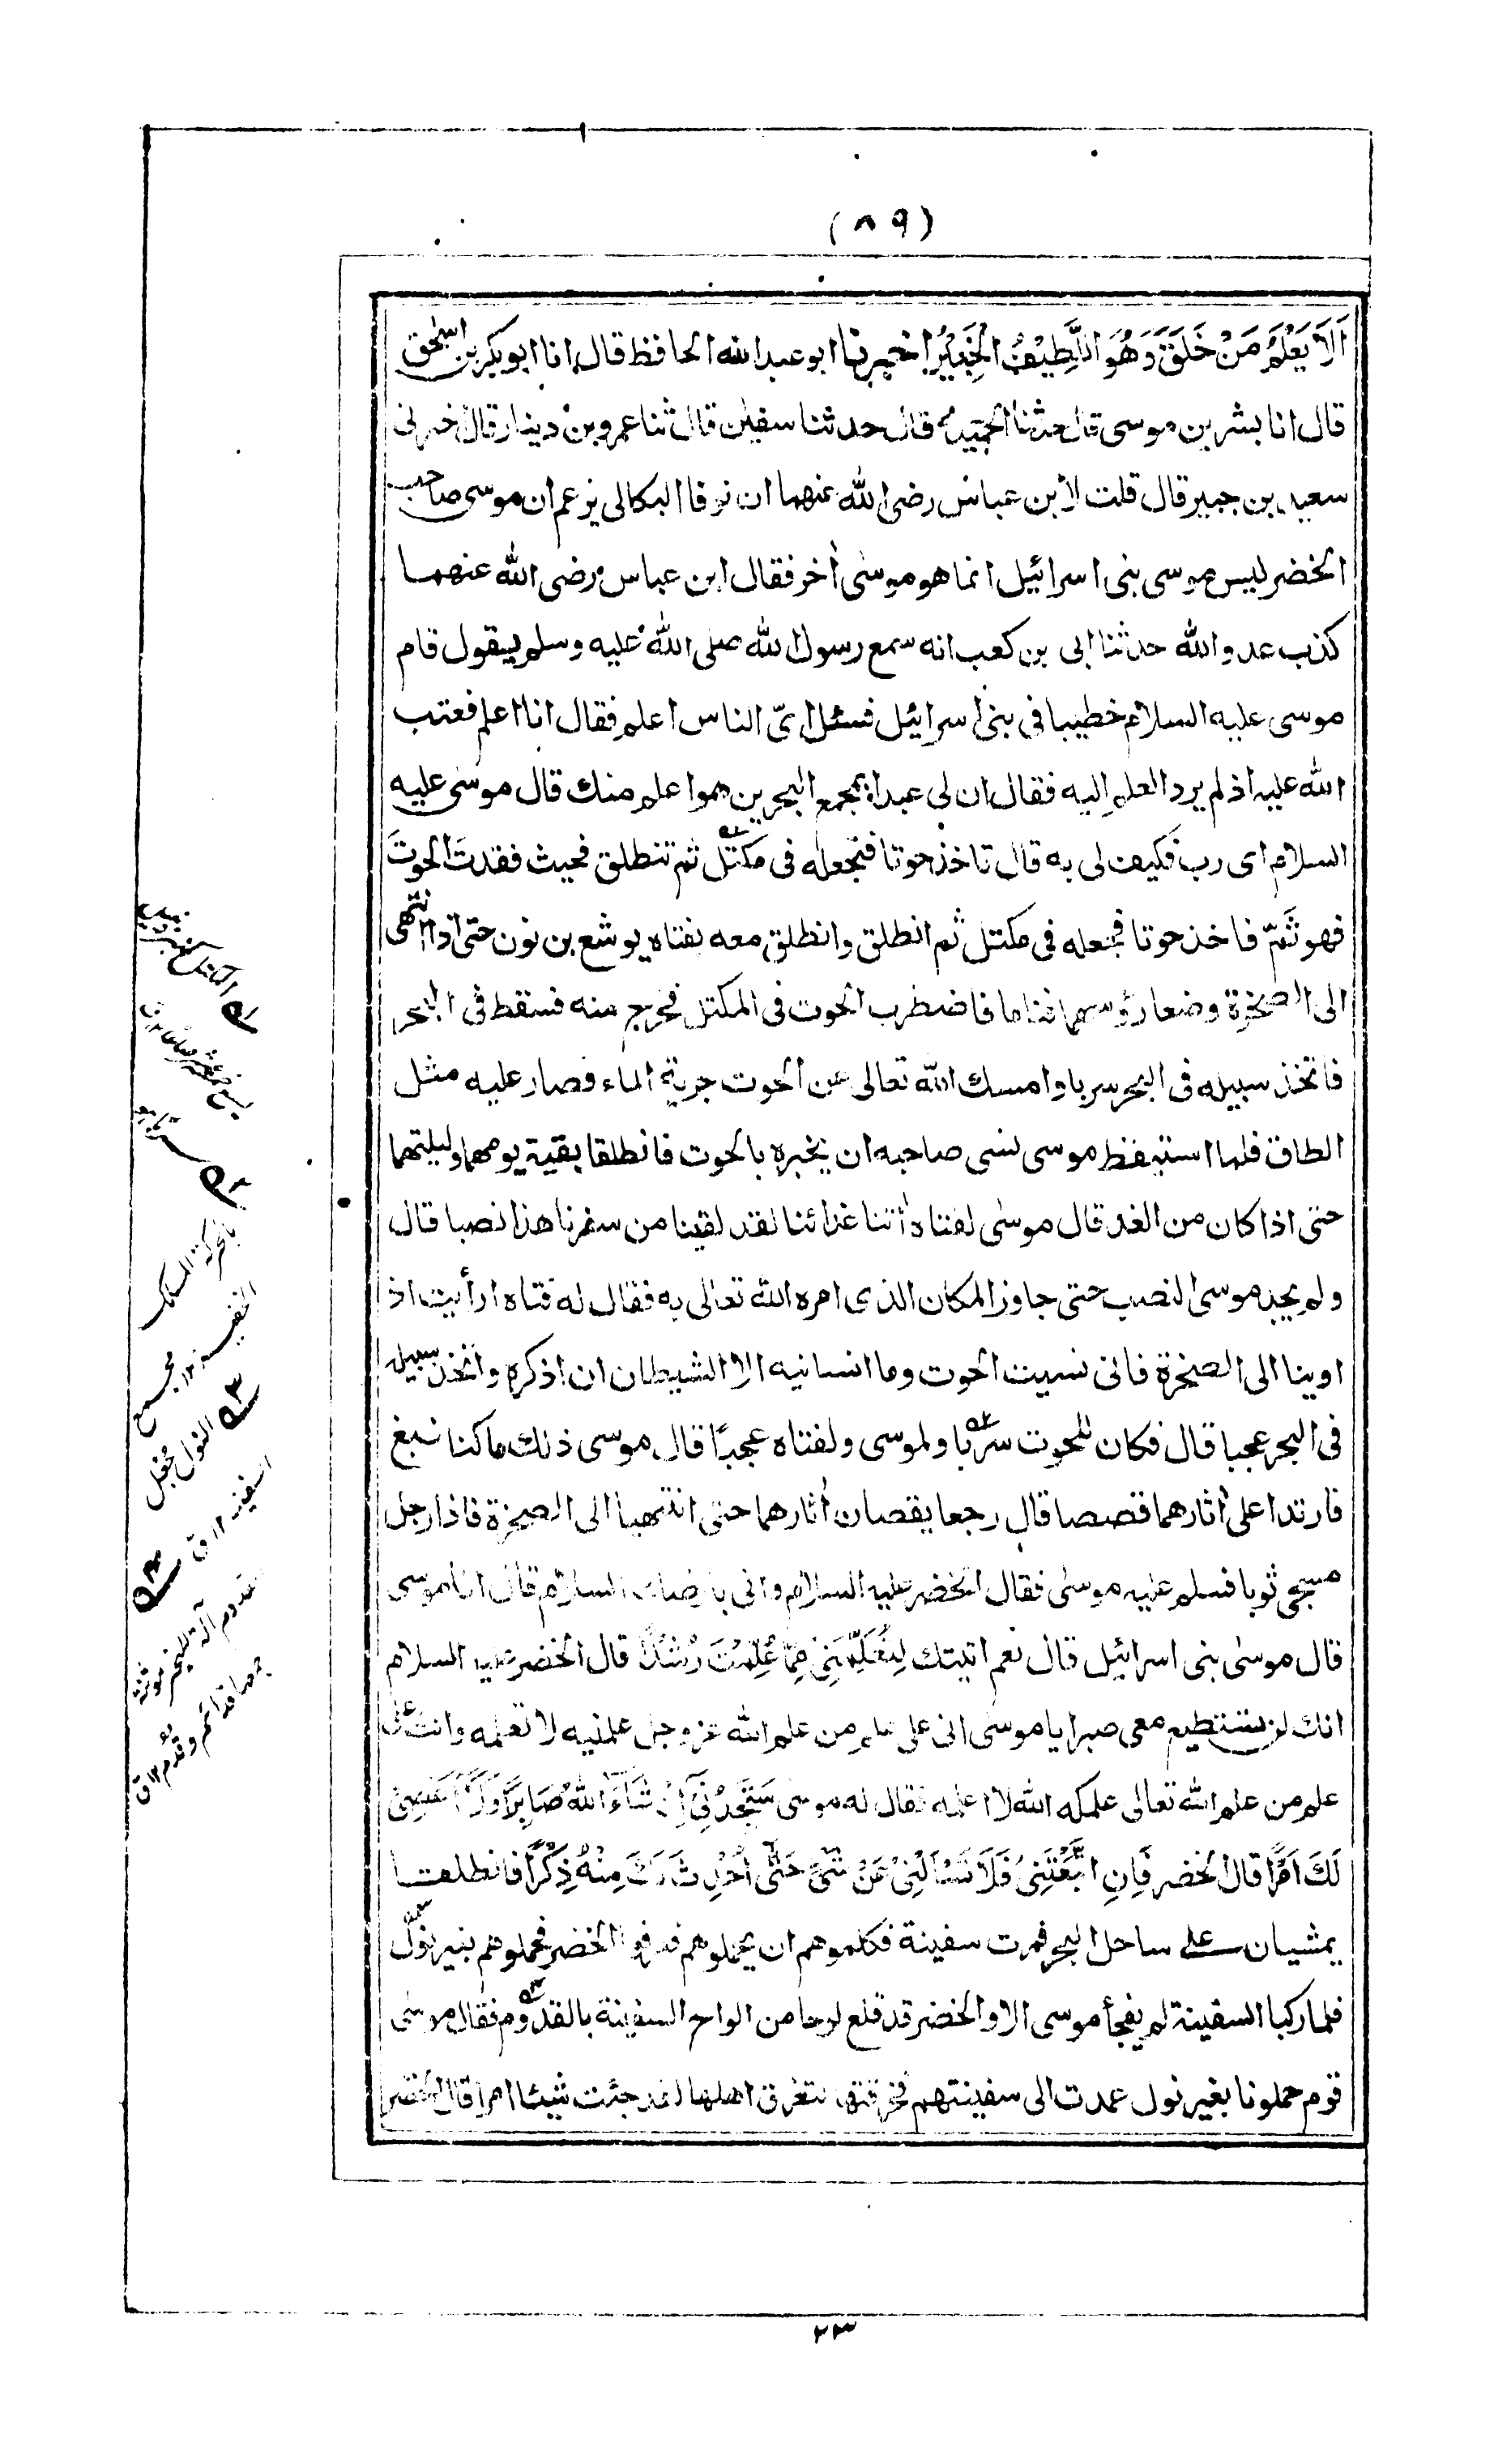 (٨٩)
اَلَا يَعْلَمُ مَنْ خَلَقَ وَهُوَ اللَّطِيْفُ الْخَبِيْرُ اخبرنا ابو عبد الله الحافظ قال انا ابو بكر بن اسحٰق
قال انا بشر بن موسى قال حدثنا الحميدى قال حدثنا سفيٰن قال ثنا عمرو بن دينار قال اخبرنى
سعيد بن جبير قال قلت لابن عباس رضى الله عنهما ان نوفا البكالى يزعم ان موسى صاحب
الخضر ليس موسى بنى اسرائيل انما هو موسٰى اٰخر فقال ابن عباس رضى الله عنهما
كذب عدو الله حدثنا ابى بن كعب انه سمع رسول الله صلى الله عليه وسلم يقول قام
موسى عليه السلام خطيبا فى بنى اسرائيل فسئل اىّ الناس اعلم فقال انا اعلم فعتب
الله عليه اذ لم يرد العلم اليه فقال ان لى عبدا بمجمع البحرين هو اعلم منك قال موسٰى عليه
السلام اى رب فكيف لى به قال تاخذ حوتا فتجعله فى مكتل ثم تنطلق فحيث فقدتَ الحوتَ
فهو ثَمّ فاخذ حوتا فجعله فى مكتل ثم انطلق وانطلق معه بفتاه يوشع بن نون حتى اذا انتهى
الى الصخرة وضعا رؤسهما فناما فاضطرب الحوت فى المكتل فخرج منه فسقط فى البحر
فاتخذ سبيله فى البحر سربا وامسك الله تعالى عن الحوت جرية الماء فصار عليه مثل
الطاق فلما استيقظ موسى نسى صاحبه ان يخبره بالحوت فانطلقا بقية يومهما وليلتهما
حتى اذا كان من الغد قال موسٰى لفتاه اٰتنا غدائنا لقد لقينا من سفرنا هذا نصبا قال
ولم يجد موسى النصب حتى جاوز المكان الذى امره الله تعالى به فقال له فتاه ارأيت اذ
اوينا الى الصخرة فانى نسيت الحوت وما انسانيه الا الشيطان ان اذكره واتخذ سبيله
فى البحر عجبا قال فكان للحوت سربا ولموسى ولفتاه عجبًا قال موسى ذلك ما كنا نبغ
فارتدا على اٰثارهما قصصا قال رجعا يقصان اٰثارهما حتى انتهيا الى الصخرة فاذا رجل
مسجى ثوبا فسلم عليه موسٰى فقال الخضر عليه السلام وانى بارضك السلام قال انا موسى
قال موسٰى بنى اسرائيل قال نعم اتيتك لِتُعَلِّمَنِىْ مِمَّا عُلِّمْتَ رُشْدًا قال الخضر عليه السلام
انك لن تستطيع معى صبرا يا موسٰى انى على علم من علم الله عز وجل علمنيه لا تعلمه وانت على
علم من علم الله تعالى علمكه الله لا اعلمه فقال له موسى سَتَجِدُنِىْٓ اِنْ شَآءَ اللهُ صَابِرًا وَّلَآ اَعْصِىْ
لَكَ اَمْرًا قال الخضر فَاِنِ اتَّبَعْتَنِىْ فَلَا تَسْاَلْنِىْ عَنْ شَىْءٍ حَتّٰى اُحْدِثَ لَكَ مِنْهُ ذِكْرًا فانطلقا
يمشيان على ساحل البحر فمرت سفينة فكلموهم ان يحملوهم فعرفوا الخضر فحملوهم بغير نَول
فلما ركبا السفينة لم يفجأ موسى الا والخضر قد قلع لوحا من الواح السفينة بالقدوم فقال موسٰى
قوم حملونا بغير نول عمدت الى سفينتهم فخرقتها لتغرق اهلها لقد جئت شيئا امرا قال الخضر
بالحركة المسلك
الخفية ١٢ مجمع
٣
النول جُعل
السفينة ١٢ ق
٢٣